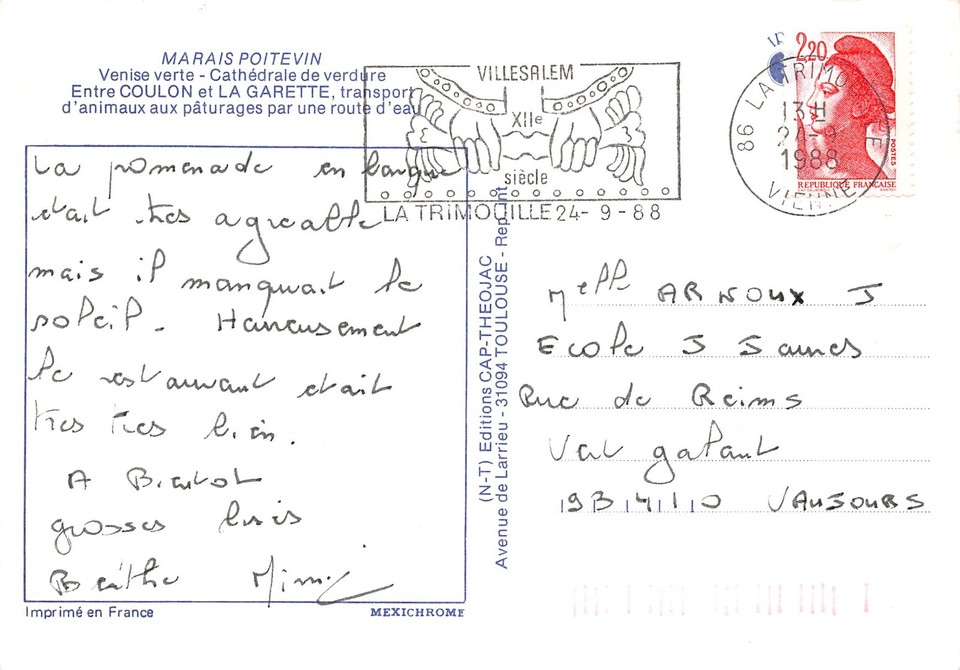 MARAIS POITEVIN
Venise verte - Cathédrale de verdure
Entre COULON et LA GARETTE, transport
d'animaux aux pâturages par une route d'eau
La promenade en barque
etait tres agreable
mais il manquait le
soleil. Heureusement
le restaurant etait
tres tres bien.
A Bientot
grosses bises
Mimi
Imprimé en France
MEXICHROME
(N-T) Editions CAP-THEOJAC
Avenue de Larrieu - 31094 TOULOUSE - Rep
VILLESALEM
XIIe
siècle
LA TRIMOUILLE 24-9-88
86 LA TRIMO
13 H
24-9
1988
VIENNE
2,20
POSTES
REPUBLIQUE FRANÇAISE
Melle ARNOUX J
Ecole J Jaures
Rue de Reims
Vert galant
93410 VAUJOURS